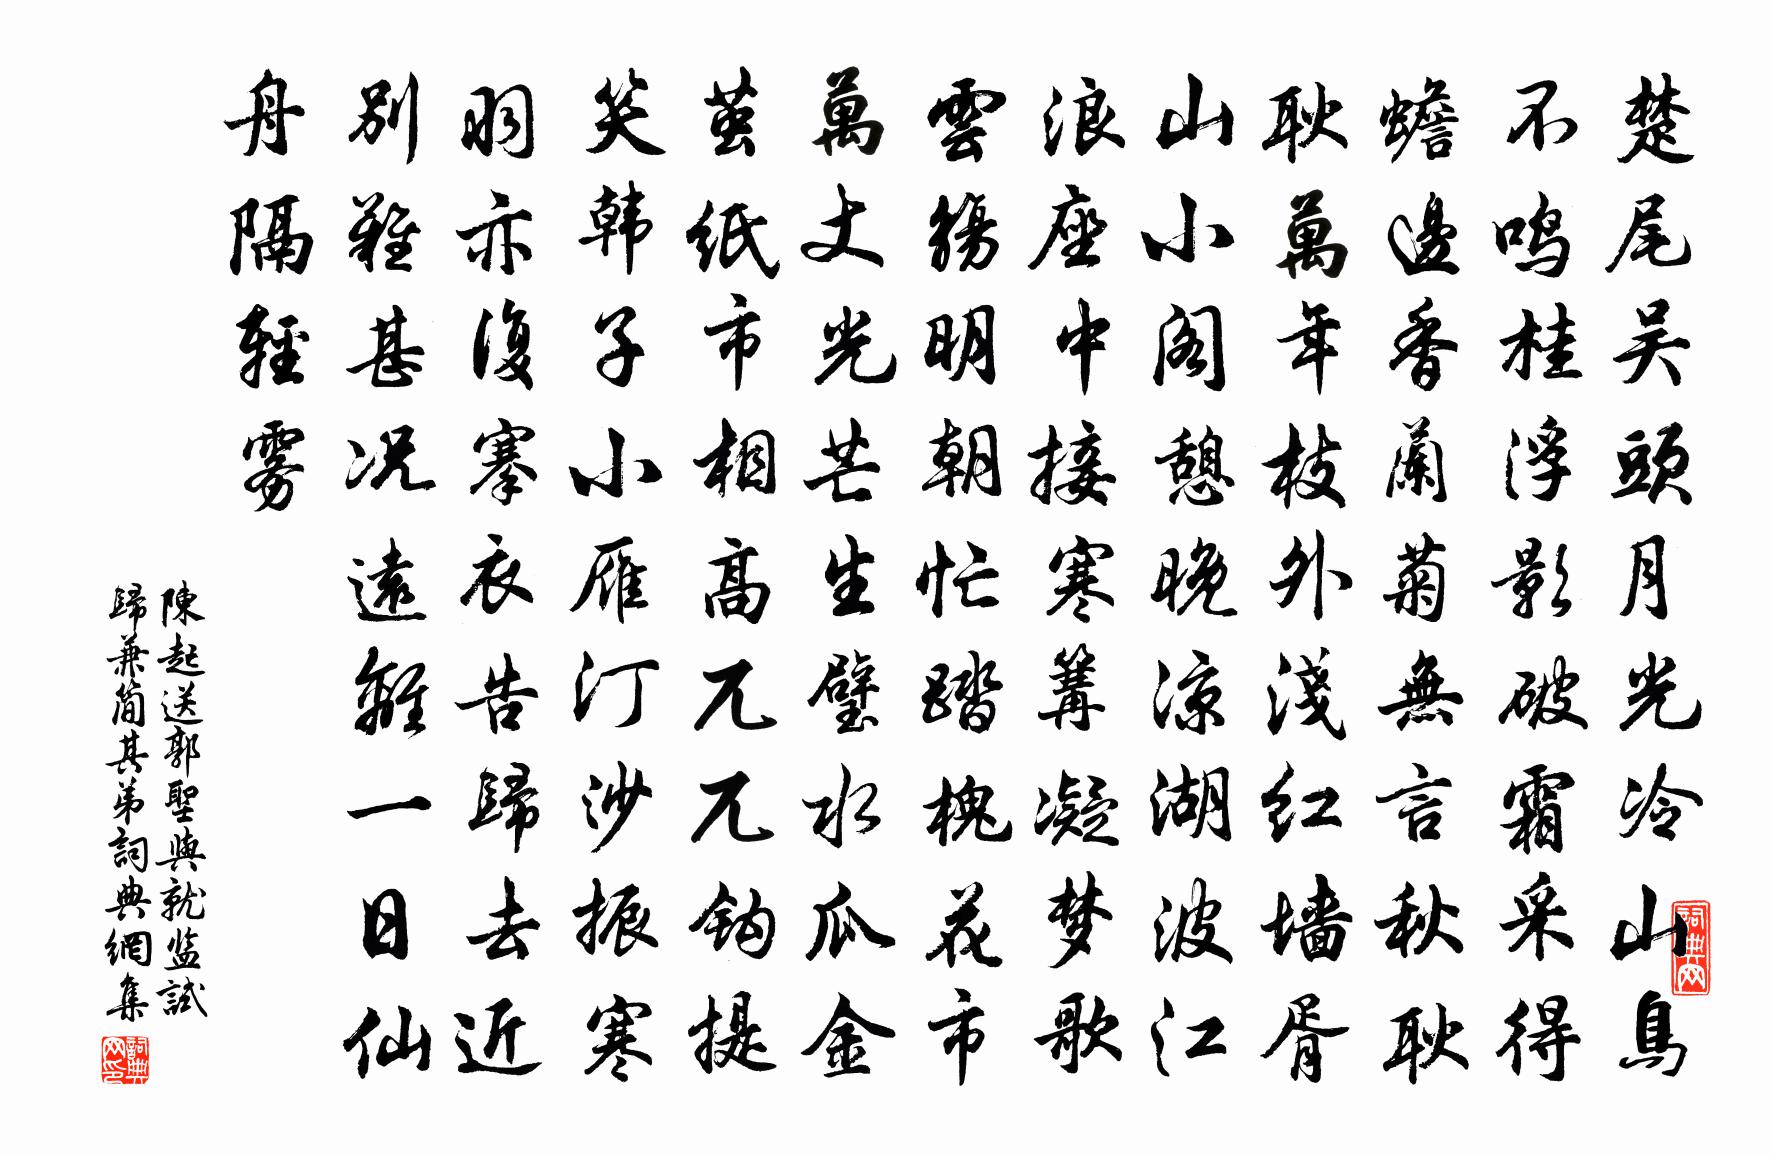 楚尾吴頭月光冷山鳥
不鳴桂浮影破霜采得
蟾邊香蘭菊無言秋耿
耿萬年枝外淺红墙胥
山小阁憩晚凉湖波江
浪座中接寒篝凝梦歌
雲觴明朝忙踏槐花市
萬丈光芒生璧水瓜金
茧纸市相高兀兀钩提
笑韩子小雁汀沙振寒
羽亦復搴衣告歸去近
别難甚况遠離一日仙
舟隔輕雾
陳起送郭聖與就监試
歸兼簡其弟詞典網集
詞典网
詞典网印